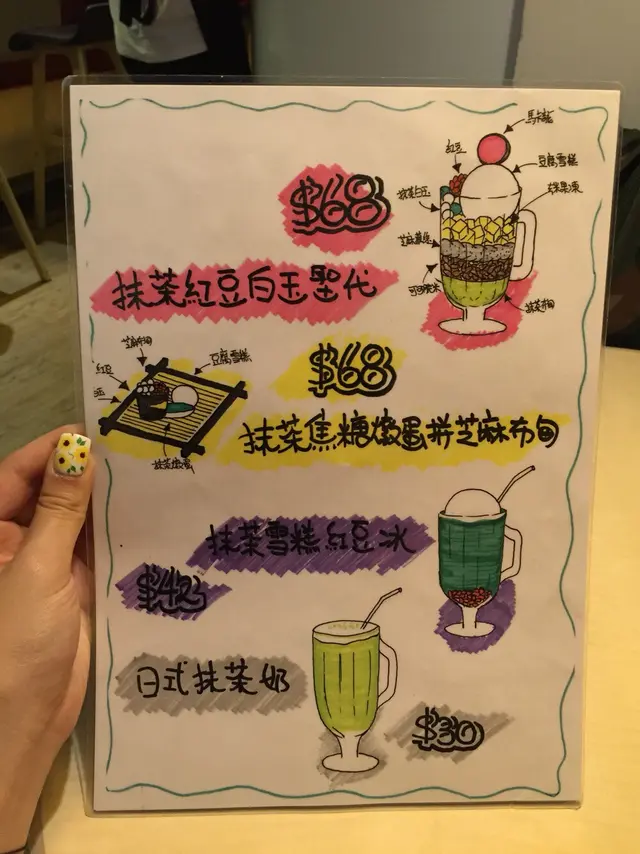 馬卡龍
紅豆
豆腐雪糕
$68
抹茶白玉
芒果果凍
芝麻蕨餅
抹茶紅豆白玉聖代
可可脆米
抹茶布甸
芝麻布甸
豆腐雪糕
$68
紅豆
抹茶燉蛋
抹茶焦糖燉蛋拼芝麻布甸
抹茶雪糕紅豆冰
$42
日式抹茶奶
$30